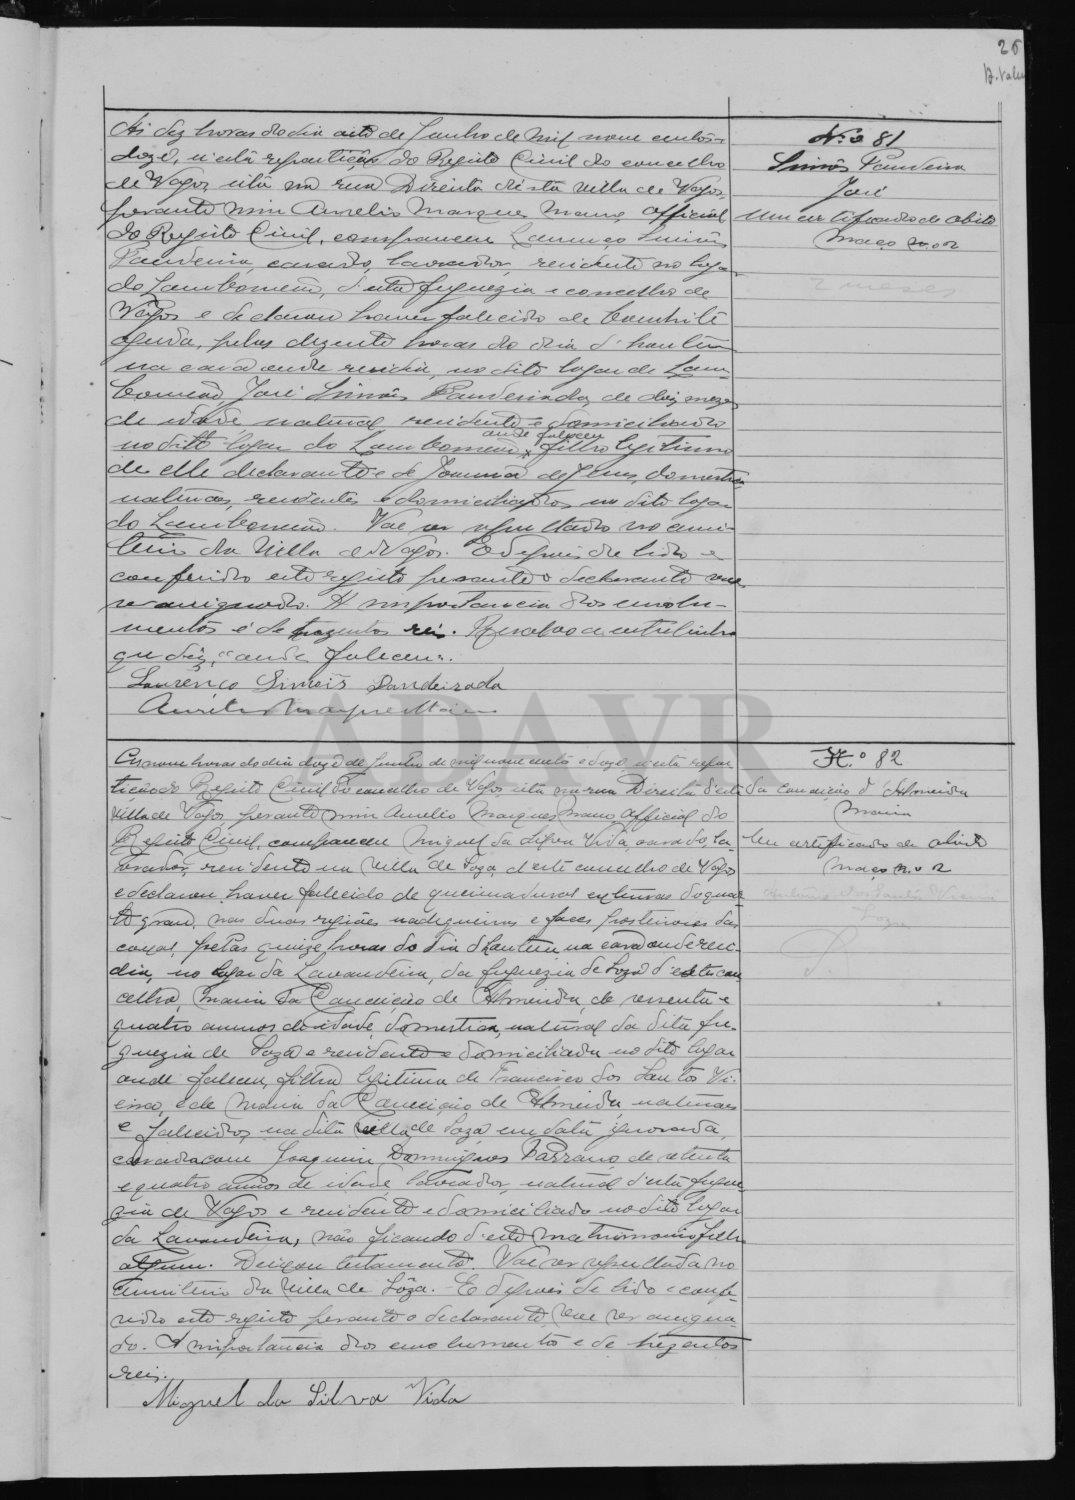 26
Ás dez horas do dia oito de Junho de mil nove centos e
doze, n'esta repartição do Registo Civil do concelho
de Vagos, sita na rua Direita d'esta villa de Vagos,
perante mim Aurelio Marques Mano, official
do Registo Civil, compareceu Lourenço Simões
Pandeirada, casado, lavrador, residente no logar
do Lombomeão, d'esta freguezia e concelho de
Vagos e declarou haver fallecido de bronchite
aguda, pelas dezenove horas do dia d'hontem
na casa onde residia, no dito logar de Lom-
bomeão, José Simões Pandeirada, de dois mezes
de idade, natural, residente e domiciliado
onde faleceu
no dito logar do Lombomeão, filho legitimo
de elle declarante e de Joanna de Jesus, domestica,
naturaes, residentes e domiciliados no dito logar
do Lombomeão. Vae ser sepultado no cemi-
terio da Villa de Vagos. E depois de lido e
conferido este registo perante o declarante vae
ser assignado. A importancia dos emolu-
mentos é de trezentos reis. Resalvo a entrelinha
que diz "onde faleceu".
Lourênço Simois Pandeirada
Aurelio Marques Mano
N.º 81
Simões Pandeirada
José
Um certificado de obito
Maço n.º 2
2 meses
Ás nove horas do dia doze de Junho de mil nove centos e doze, n'esta repar-
tição do Registo Civil do concelho de Vagos, sita na rua Direita d'esta
villa de Vagos, perante mim Aurelio Marques Mano, official do
Registo Civil, compareceu Miguel da Silva Vida, casado, la-
vrador, residente na Villa de Soza, d'este concelho de Vagos
e declarou haver fallecido de queimaduras extensas do quar-
to grau, nas duas regiões nadegueiras e faces posteriores das
coxas, pelas quinze horas do dia d'hontem na casa onde resi-
dia, no logar da Lavandeira, da freguezia de Soza d'este con-
celho, Maria da Conceição de Almeida, de sessenta e
quatro annos de idade, domestica, natural da dita fre-
guezia de Soza e residente e domiciliada no dito logar
onde faleceu, filha legitima de Francisco dos Santos Vi-
eira, e de Maria da Conceição de Almeida, naturaes
e fallecidos, na dita Villa de Soza, em data ignorada,
casada com Joaquim Domingues Parrano, de setenta
e quatro annos de idade, lavrador, natural d'esta fregue-
zia de Vagos e residente e domiciliado no dito logar
da Lavandeira, não ficando d'este matrimonio filho
algum. Deixou testamento. Vae ser sepultada no
cemiterio da Villa de Sôza. E depois de lido e confe-
rido este registo perante o declarante, vae ser assigna-
do. A importancia dos emolumentos é de trezentos
reis.
Miguel da Silva Vida
N.º 82
da Conceição d'Almeida
Maria
Um certificado de obito
Maço n.º 2
Soza
ADAVR